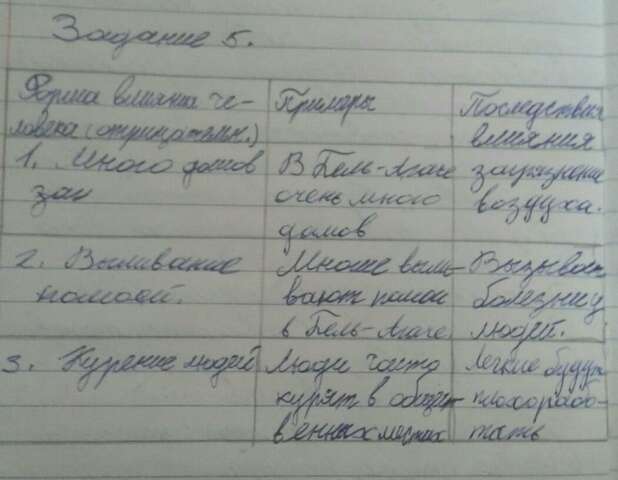 Задание 5.
Форма влияния че-
ловека (отрицательн.)
Примеры
Последствия
влияния
1. Много домов
зак
В Бель-Агаче
очень много
домов
загрязнение
воздуха.
2. Выливание
помоей.
Многие выли-
вают помои
в Бель-Агаче
Вызывает
болезни у
людей.
3. Курение людей
Люди часто
курят в общест-
венных местах
Легкие будут
плохо рабо-
тать